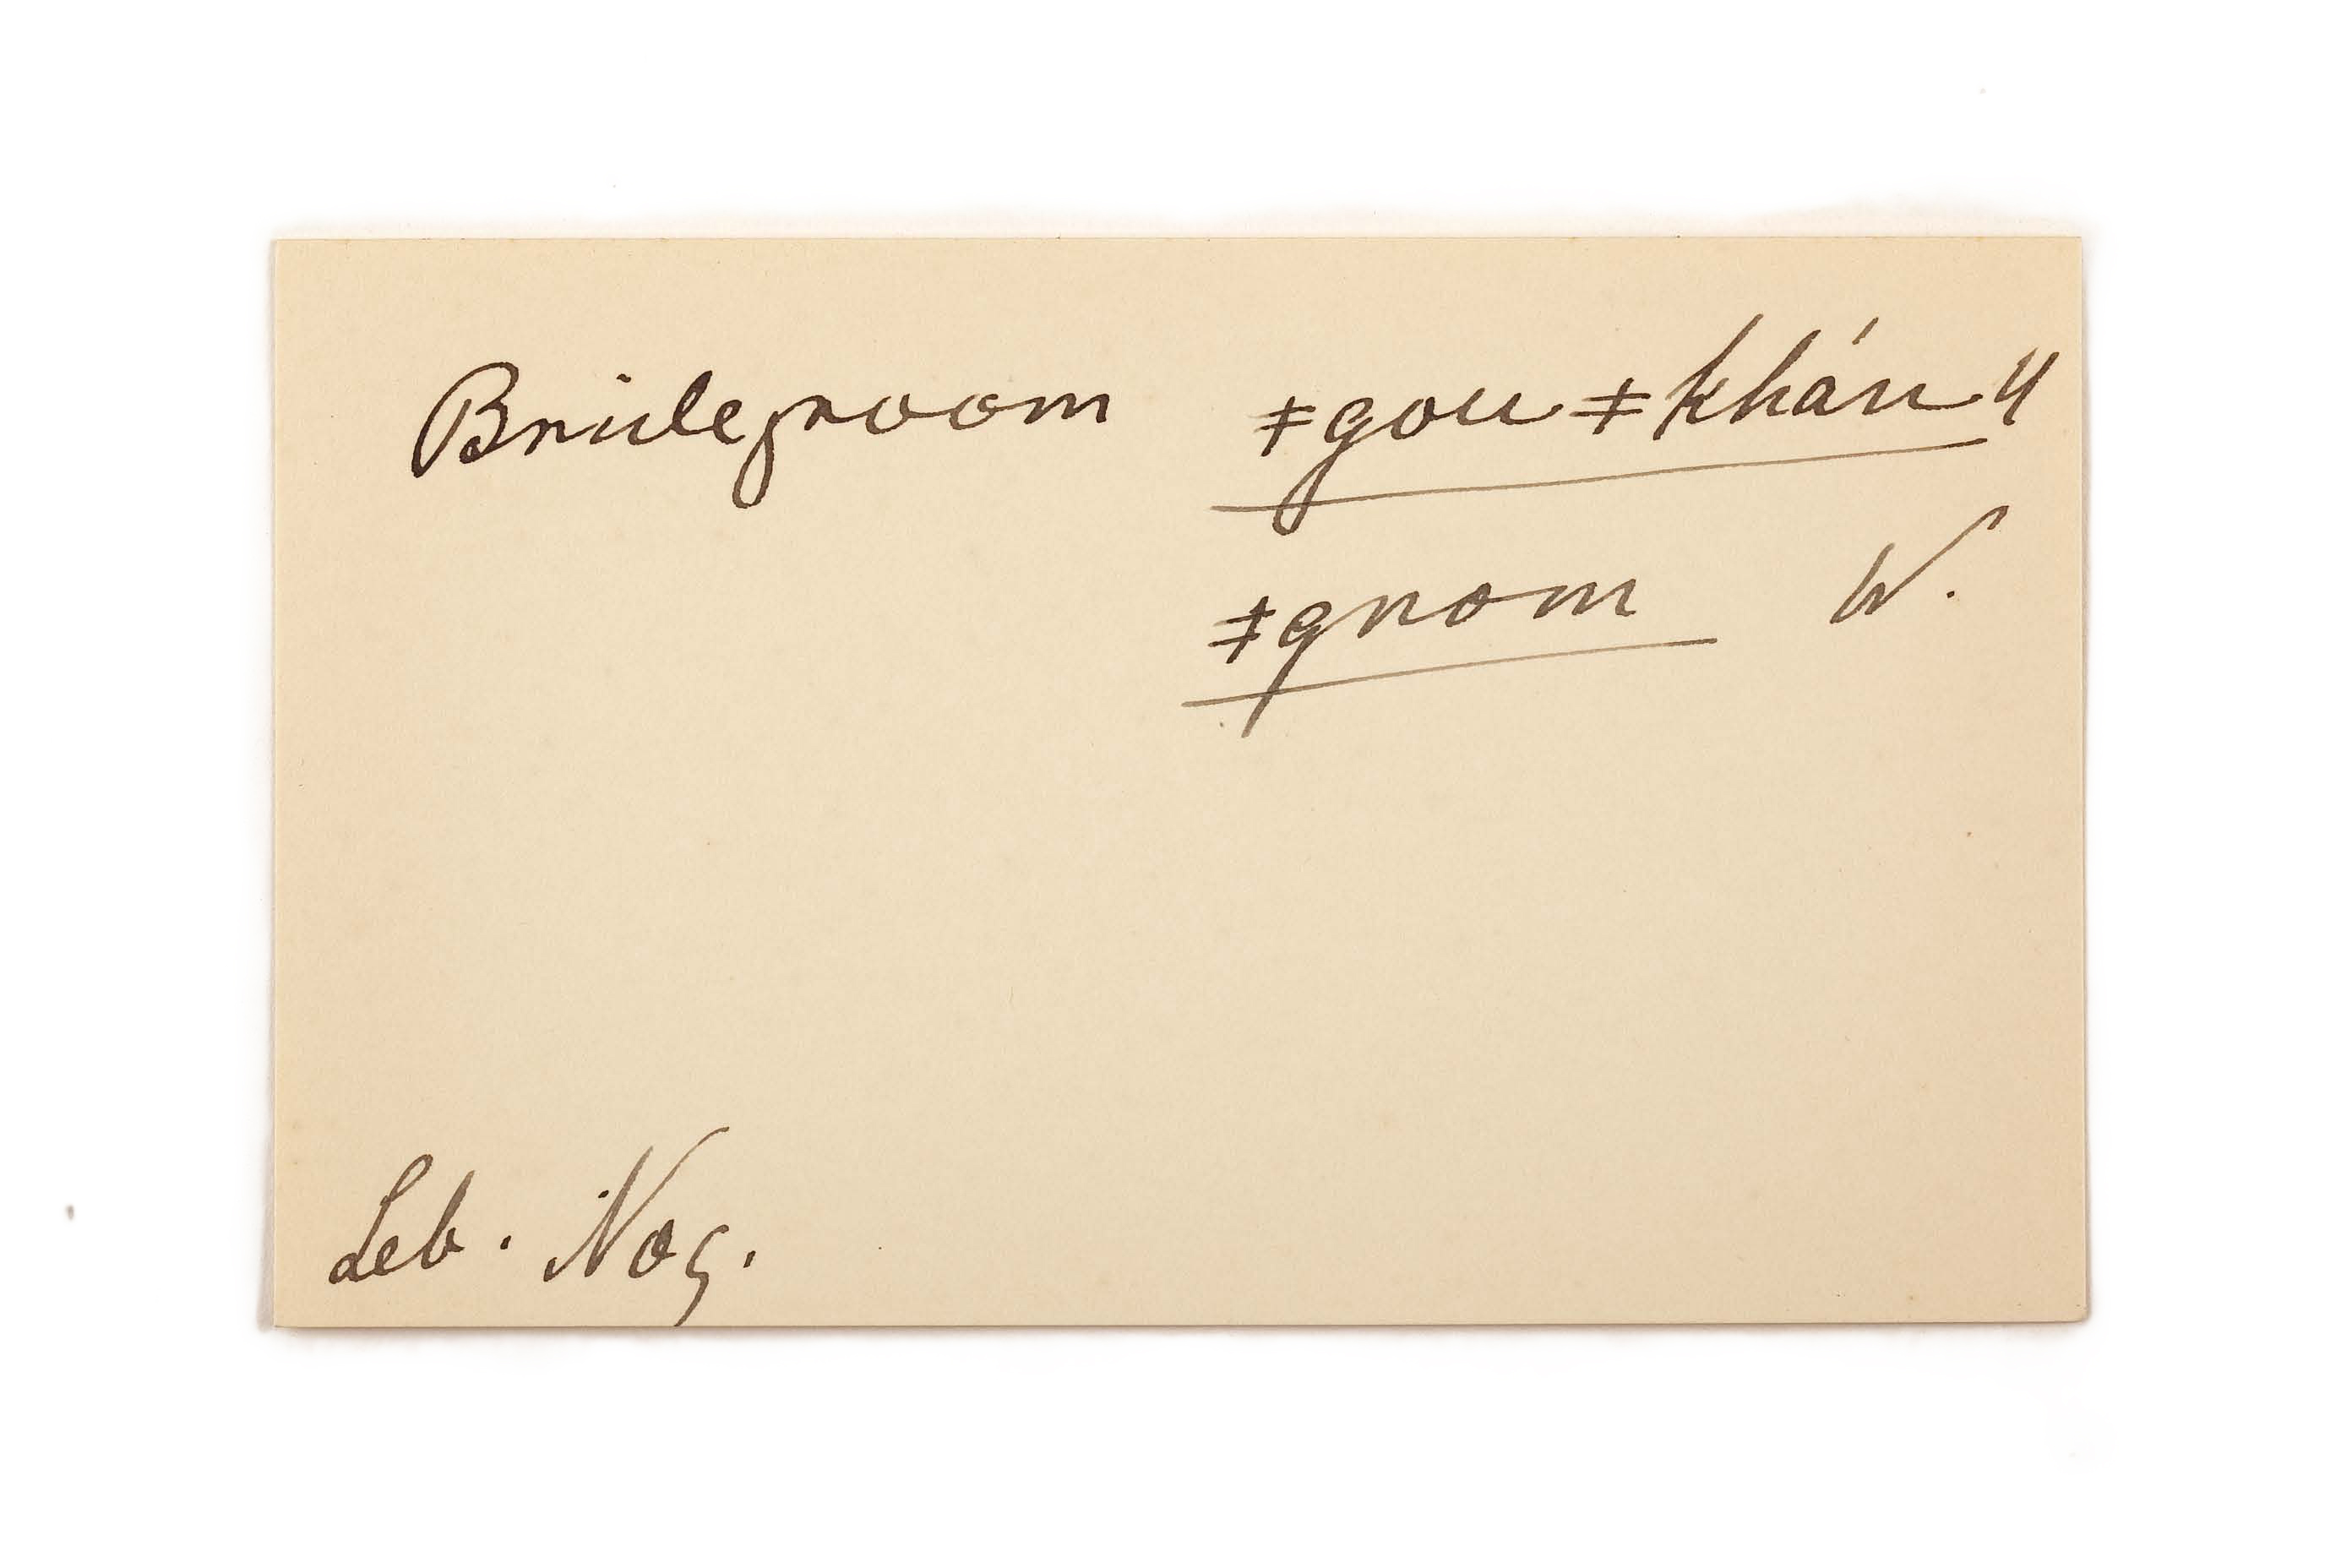 Bridegroom ǂgou ǂkhán 4
ǂgnom W.
Leb. Nog.